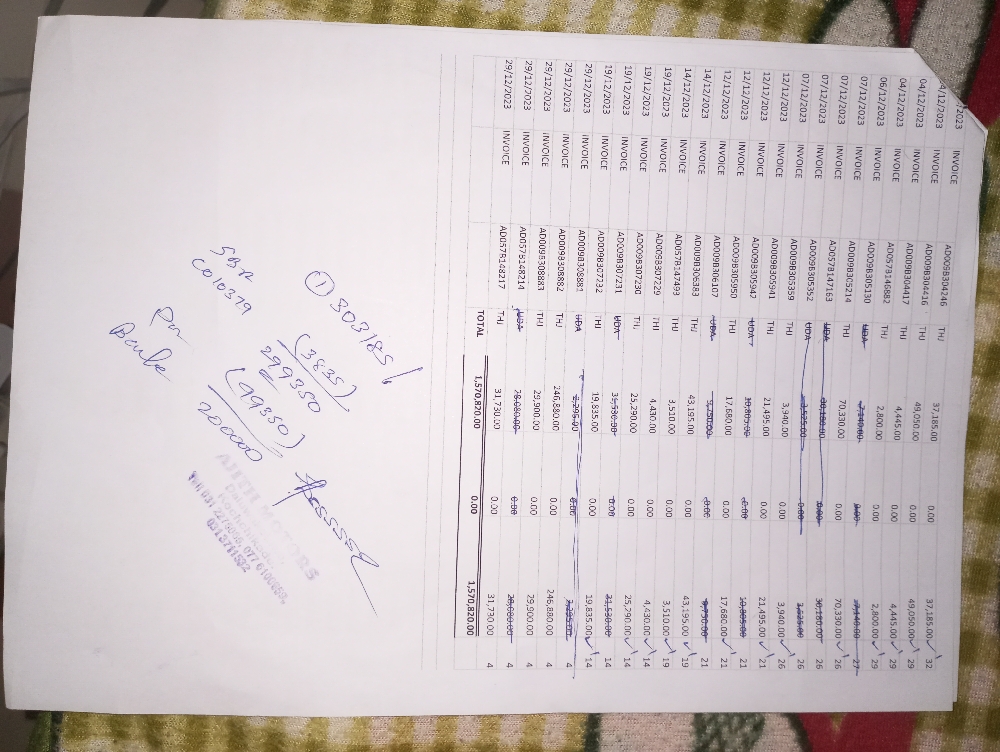 /2023 INVOICE
04/12/2023 INVOICE AD009B304246 THJ 37,185.00 0.00 37,185.00 ✓ 32
04/12/2023 INVOICE AD009B304416 THJ 49,050.00 0.00 49,050.00 ✓ 29
04/12/2023 INVOICE AD009B304417 THJ 4,445.00 0.00 4,445.00 ✓ 29
06/12/2023 INVOICE AD057B146882 THJ 2,800.00 0.00 2,800.00 ✓ 29
07/12/2023 INVOICE AD009B305130 UDA 7,140.00 0.00 7,140.00 27
07/12/2023 INVOICE AD009B305214 THJ 70,330.00 0.00 70,330.00 ✓ 26
07/12/2023 INVOICE AD057B147163 UDA 30,180.00 0.00 30,180.00 26
07/12/2023 INVOICE AD009B305352 UDA 3,525.00 0.00 3,525.00 26
12/12/2023 INVOICE AD009B305359 THJ 3,940.00 0.00 3,940.00 ✓ 26
12/12/2023 INVOICE AD009B305941 THJ 21,495.00 0.00 21,495.00 ✓ 21
12/12/2023 INVOICE AD009B305947 UDA 10,805.00 0.00 10,805.00 21
12/12/2023 INVOICE AD009B305950 THJ 17,680.00 0.00 17,680.00 ✓ 21
14/12/2023 INVOICE AD009B306107 UDA 9,750.00 0.00 9,750.00 21
14/12/2023 INVOICE AD009B306383 THJ 43,195.00 0.00 43,195.00 ✓ 19
19/12/2023 INVOICE AD057B147493 THJ 3,510.00 0.00 3,510.00 ✓ 19
19/12/2023 INVOICE AD009B307229 THJ 4,430.00 0.00 4,430.00 ✓ 14
19/12/2023 INVOICE AD009B307230 THJ 25,290.00 0.00 25,290.00 ✓ 14
19/12/2023 INVOICE AD009B307231 UDA 31,530.00 0.00 31,530.00 14
29/12/2023 INVOICE AD009B307232 THJ 19,835.00 0.00 19,835.00 ✓ 14
29/12/2023 INVOICE AD009B308881 UDA 2,295.00 0.00 2,295.00 4
29/12/2023 INVOICE AD009B308882 THJ 246,880.00 0.00 246,880.00 4
29/12/2023 INVOICE AD009B308883 THJ 29,900.00 0.00 29,900.00 4
29/12/2023 INVOICE AD057B148214 UDA 28,080.00 0.00 28,080.00 4
29/12/2023 INVOICE AD057B148217 THJ 31,730.00 0.00 31,730.00 4
TOTAL 1,570,820.00 0.00 1,570,820.00
① 303185/
(3835)
299350
(99350)
200000
SBR
C010379